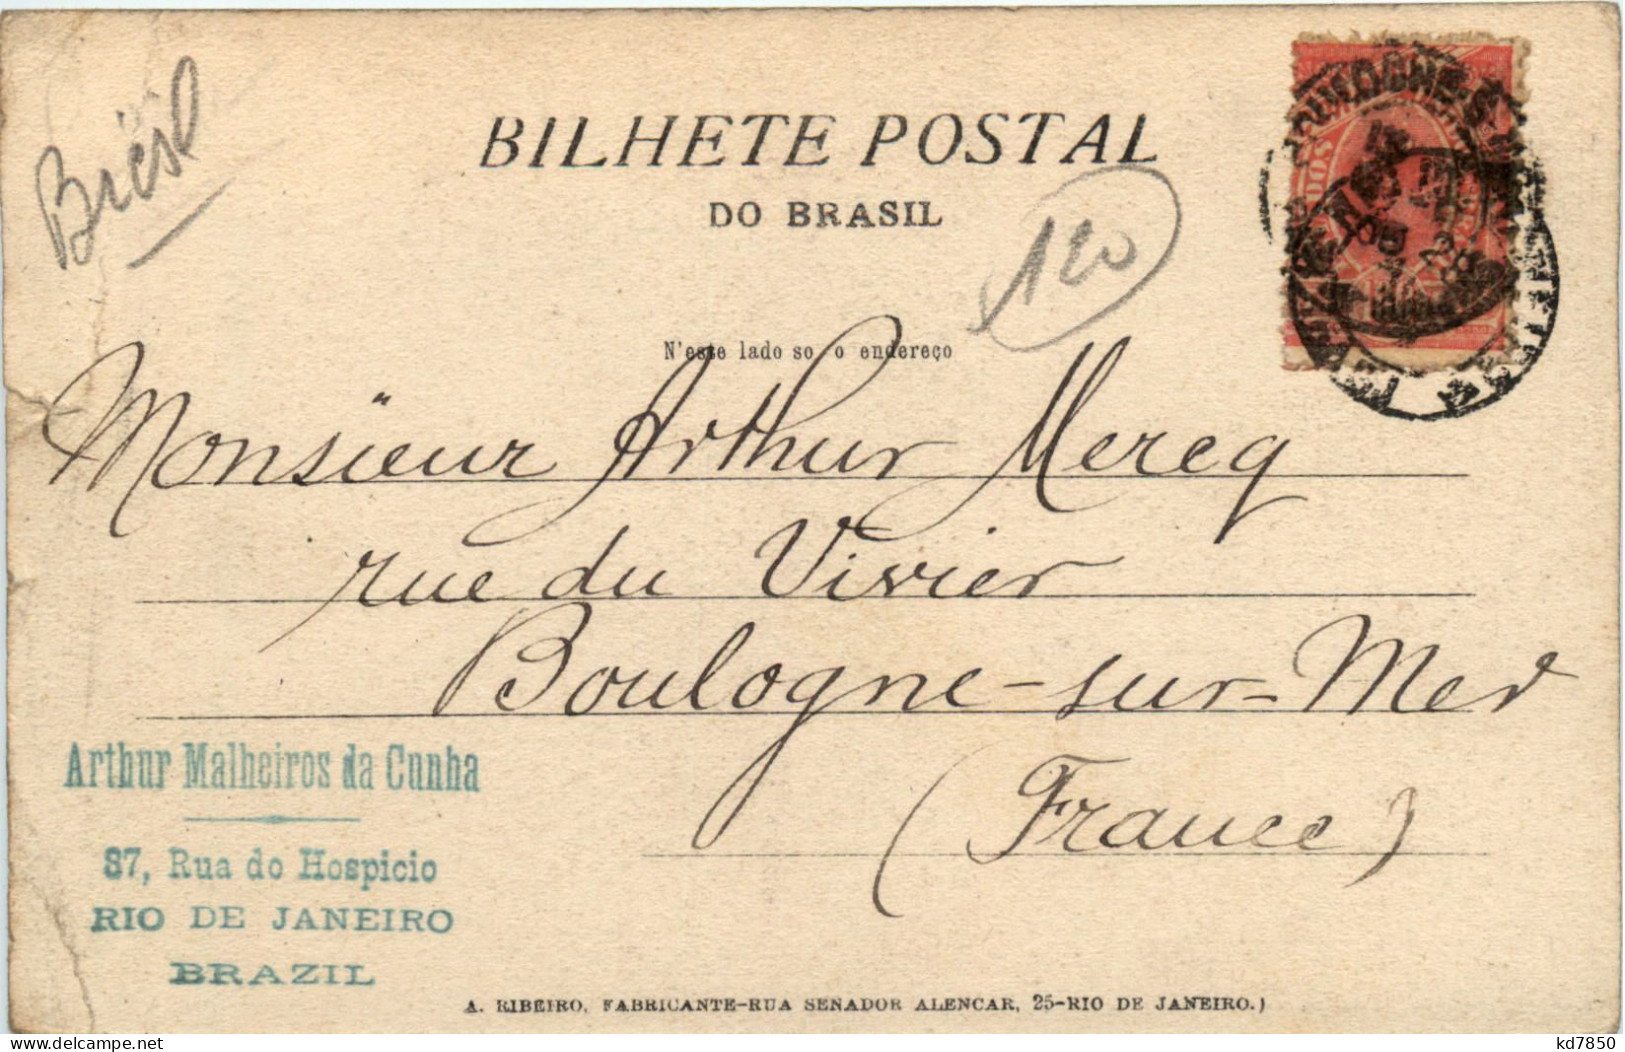 Brésil
BILHETE POSTAL
DO BRASIL
120
N'este lado so o endereço
Monsieur Arthur Mercq
rue du Vivier
Boulogne-sur-Mer
(France)
Arthur Malheiros da Cunha
87, Rua do Hospicio
RIO DE JANEIRO
BRAZIL
A. RIBEIRO, FABRICANTE-RUA SENADOR ALENCAR, 25-RIO DE JANEIRO.)
kd7850